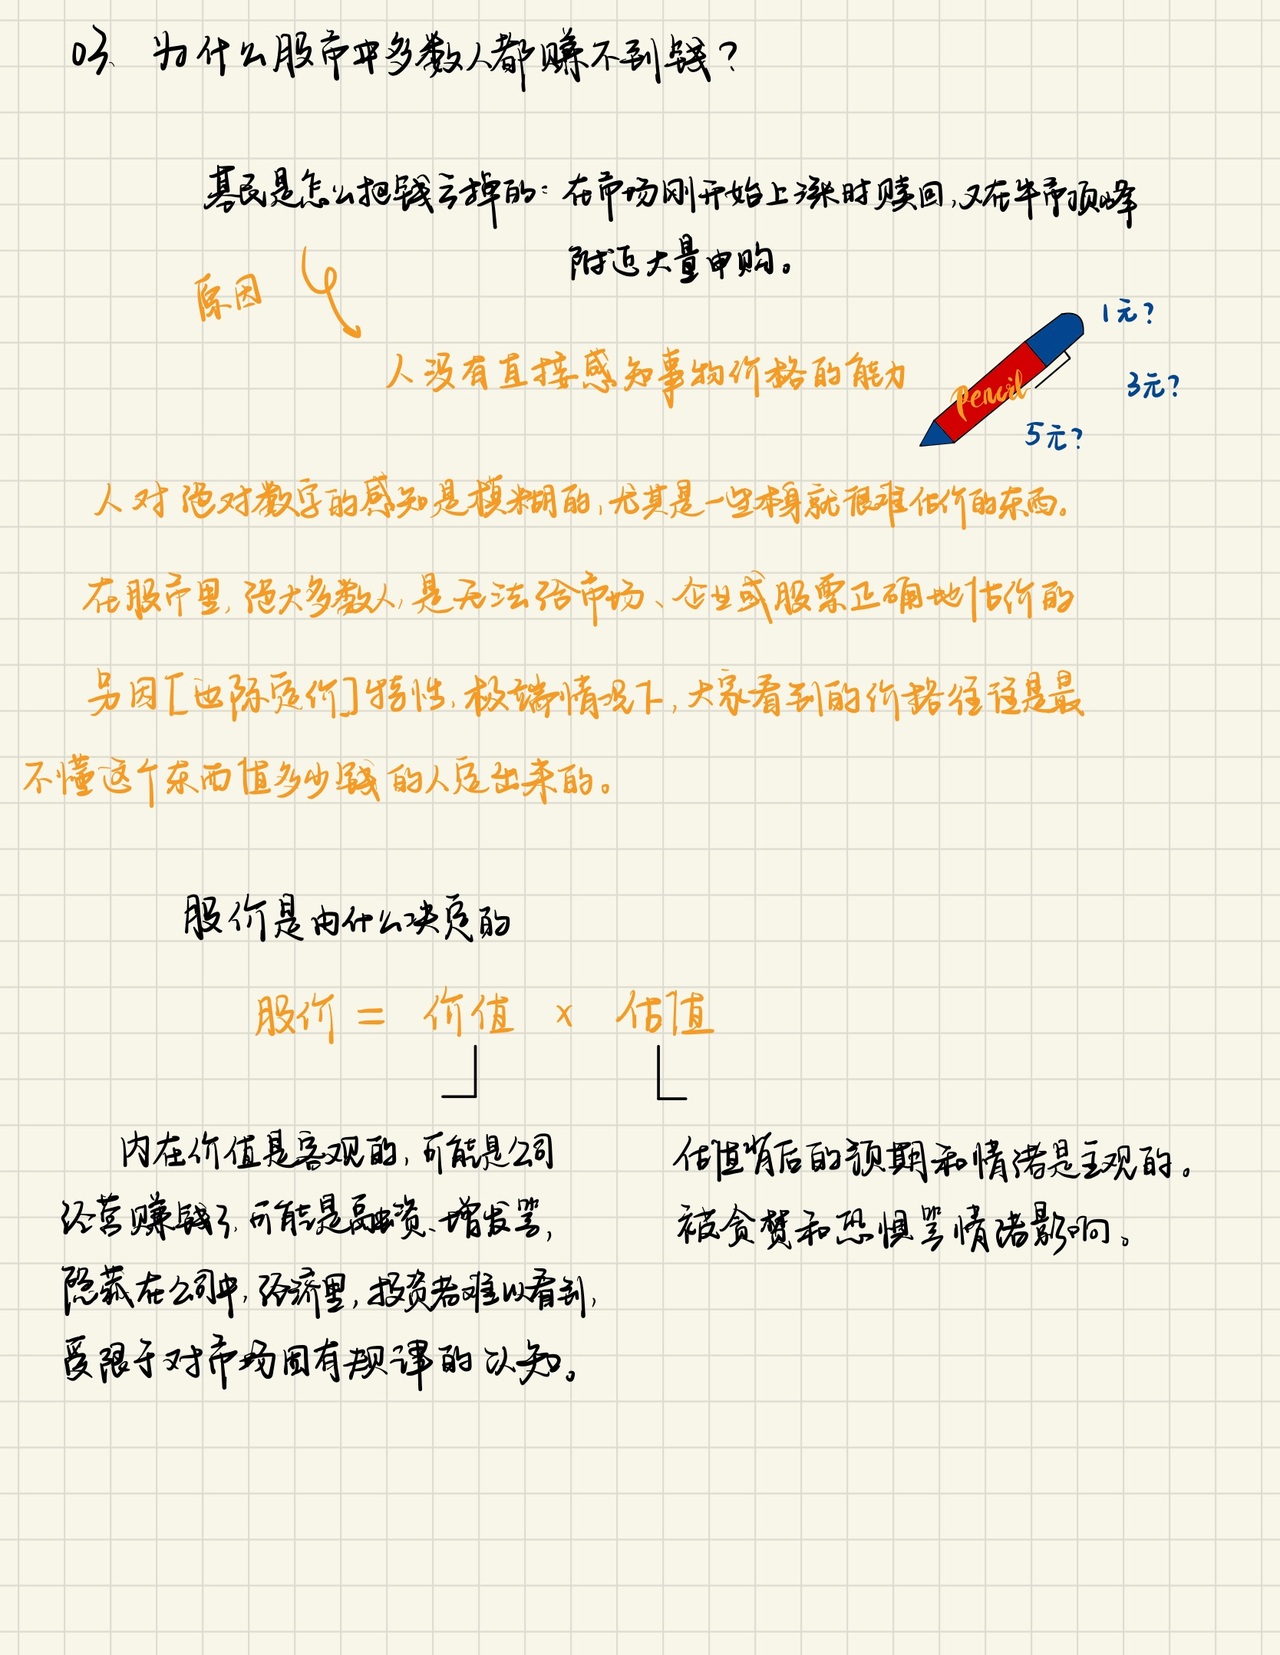 03、为什么股市中多数人都赚不到钱？
基民是怎么把钱亏掉的：在市场刚开始上涨时赎回，又在牛市顶峰
附近大量申购。
原因
1元？
人没有直接感知事物价格的能力
pencil
3元？
5元？
人对绝对数字的感知是模糊的，尤其是一些本身就很难估价的东西。
在股市里，绝大多数人，是无法给市场、企业或股票正确地估价的
另因[边际定价]特性，极端情况下，大家看到的价格往往是最
不懂这个东西值多少钱的人定出来的。
股价是由什么决定的
股价 = 价值 × 估值
内在价值是客观的，可能是公司
经营赚钱了，可能是融资、增发等，
隐藏在公司中，经济里，投资者难以看到，
受限于对市场固有规律的认知。
估值背后的预期和情绪是主观的。
被贪婪和恐惧等情绪影响。